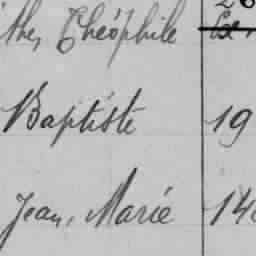 the, Théophile
Baptiste 19
Jean, Marie 14